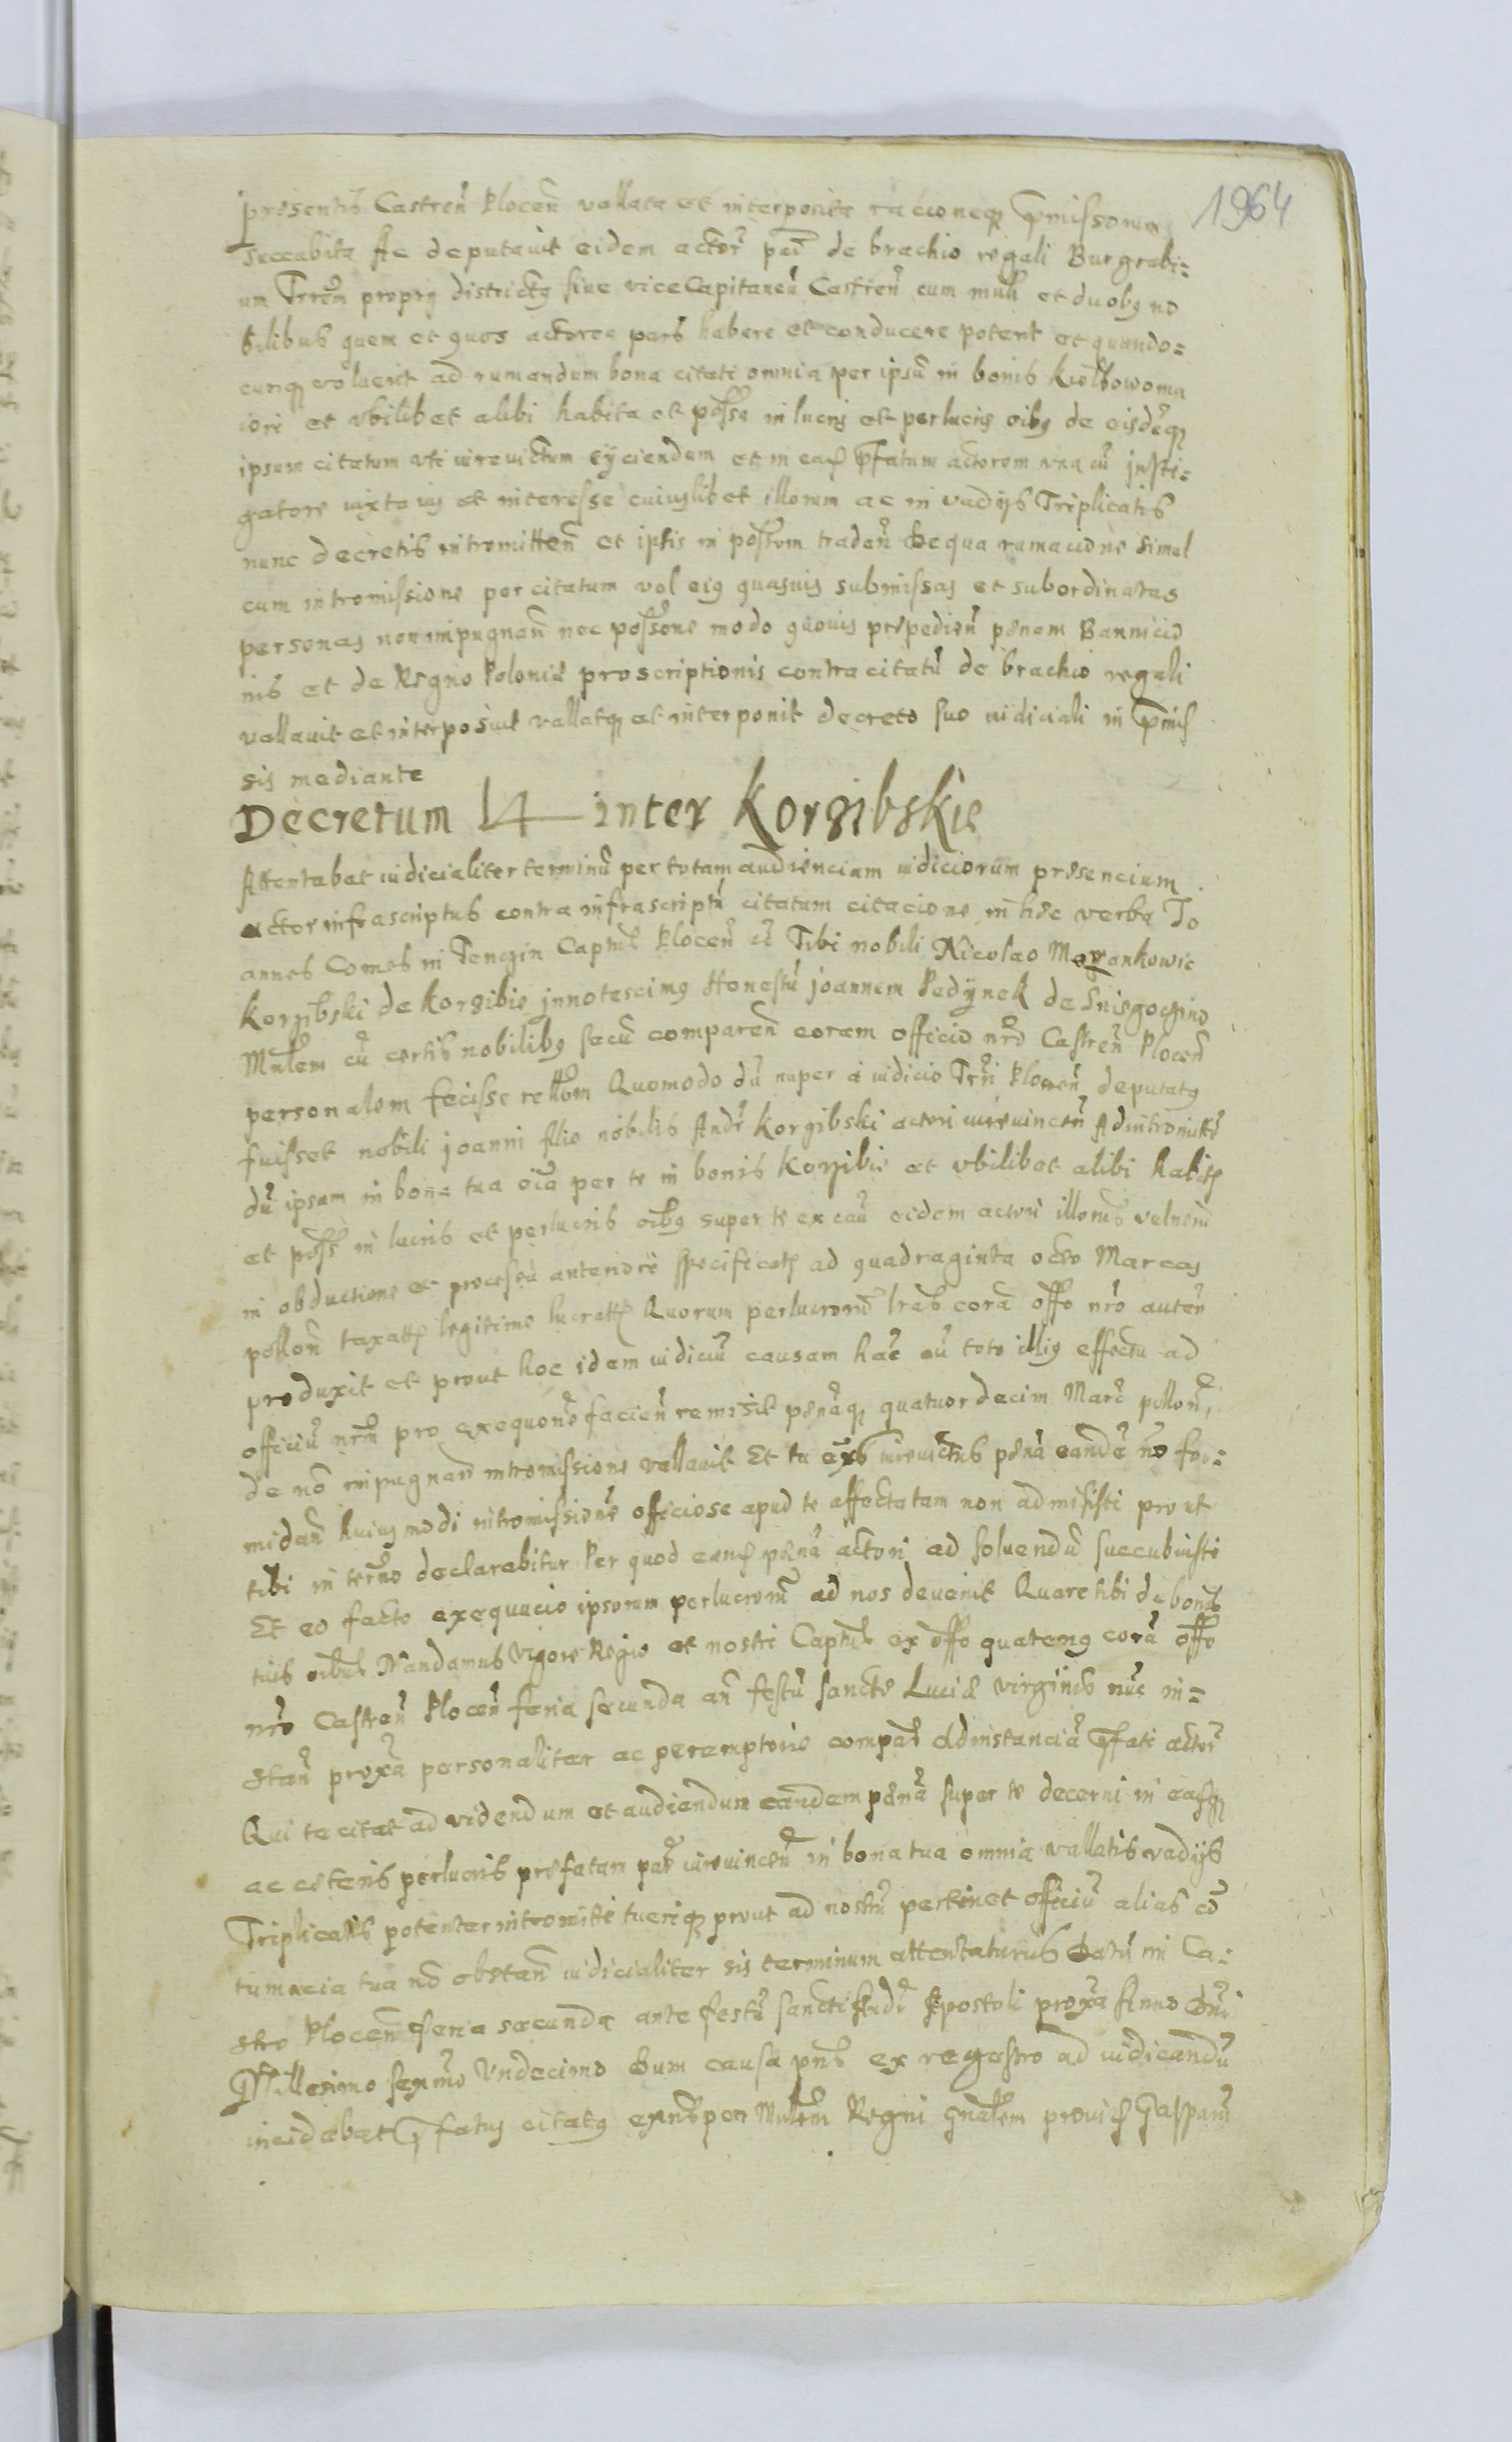 1964
presentis Castren̄ Plocen̄ vallata et interposita racioneq̨ p̄missorum
succubita Ac deputavit eidem actor̄ pa͞ti de brachio regali Burgrabi=
um Trr̄em proprij districtus siue viceCapitaneū Castren̄ cum mnl̄i et duobus no
bilibus quem et quos actorea pars habere et conducere poterit et quando=
cunq̨ voluerit ad rumandum bona citati omnia per ipsū in bonis Kiełbowo ma
iori et vbilibet alibi habita et possa in lucris et perlucris oībus de eisdēq̨
ipsum citatum vti iurevictum eyciendum et in eadē p̄fatum actorem vna cū insti=
gatore iuxta ius et interesse cuiuslibet illorum ac in vadijs Triplicatis
nunc decretis intromitten̄ et iptis in possēm tradan̄ De qua rumacione simul
cum intromissione per citatum vel eius quasuis submissas et subordinatas
personas non impugnan̄ nec possone modo quouis prepedien̄ penam Bannicio
nis et de Regno Poloniæ proscriptionis contra citatū de brachio regali
vallauit et interposuit vallatq̨ et interponit decreto suo iudiciali in p̄mis
sis mediante
Decretum 14 inter Korzibskie
Attentabat iudicialiter terminū per totam audienciam iudiciorum presencium
actor infrascriptus contra infrascriptū citatum citacione in hæc verba Jo
annes Comes in Tenczin Captn̄s Plocen̄ &c Tibi nobili Nicolao Marankowic
Korzibski de Korzibie innotescimus Honestū joannem Pedzynek de Sniegoczino
Mnl̄em cū certis nobilibus secū comparen̄ coram officio nr̄o Castren̄ Plocen̄
personalem fecisse rell̄om Quomodo dū nuper à iudicio Trr̄i Plocen̄ deputatus
fuisset nobili joanni filio nobilis Andr̄ Korzibski actori iurevincen̄ Ad intromitte
dū ipsum in bona tua oīa per te in bonis Korzibie et vbilibet alibi habita
et poss̄ in lucris et perlucris oībus super te ex cau͞ eidem actori illorū vulnerū
in obductione et processu anteriore specificatē ad quadraginta octo Marcas
pollon̄ taxatē legitime lucratē Quorum perlucrorū lrās corā offo nr̄o auten̄
produxit et prout hoc idem iudiciū causam hāc cū toto illius effectu ad
officiū nr̄m pro exequōne facien̄ remisit penāq̨ quatuordecim Marc̄ pollon̄
de nō impugnan̄ intromissione vallauit Et tu ex̄ns iurevictus penā eandē nō for=
midan̄ huiusmodi intromissionē officiose apud te affectatam non admisisti prout
tibi in terīno declarabitur Per quod eandē penā actori ad soluendū succubuisti
Et eo facto exequucio ipsorum perlucrorū ad nos devenit Quare tibi de bonis
tuis oībus Mandamus vigore Regio et nostri Captn̄s ex offo quatenus corā offo
nr̄o Castren̄ Plocen̄ feria secunda an̄ festū sanctæ Luciæ virginis nūc in=
stan̄ proxā personaliter ac peremptorie compar̄s Ad instanciā p̄fati actor̄
Qui te citat ad videndum et audiendum eandem penā super te decerni in easq̨
ac ceteris perlucris prefatam par̄ iurevincen̄ in bona tua omnia vallatis vadijs
Triplicatis potenter intromitti tueriq̨ prout ad nostrū pertinet officiū alias cō
tumacia tua nō obstan̄ iudicialiter sis terminum attentaturus Datū in Ca=
stro Plocen̄ feria secunda ante festū sancti Andr̄ Apostoli proxā Anno dn̄i
Millesimo sexm̄o Vndecimo Dum causa pn̄s ex regestro ad iudicandū
incidebat p̄fatus citatus ex̄ns per Mnl̄em Regni gnalem provid̄ Gasparū